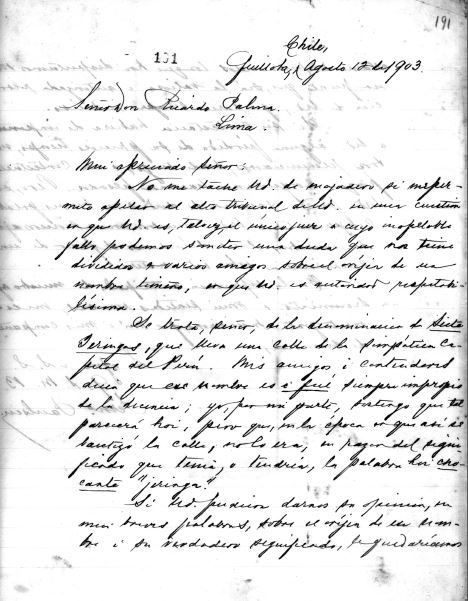 191
Chile,
191
Quillota, Agosto 12 de 1903.
Señor Don Ricardo Palma.
Lima.
Mui apreciado señor:
No me tache Ud. de majadero si me per-
mito apelar al alto tribunal de Ud. en una cuestion
en que Ud. es, talvez, el único juez a cuyo inapelable
fallo podemos someter una duda que nos tiene
divididos a varios amigos sobre el oríjen de un
nombre limeño, en que Ud. es autoridad respetabi-
lísima.
Se trata, señor, de la denominacion de Siete
Jeringas, que lleva una calle de la simpática ca-
pital del Perú. Mis amigos i contendores
dicen que ese nombre es i fué siempre impropio
de la decencia; yo, por mi parte, sostengo que tal
parecerá hoi, pero que, en la época en que así se
bautizó la calle, no lo era, en razon del signi-
ficado que tenia, o tendria, la palabra hoi cho-
cante "jeringa".
Si Ud. pudiera darnos su opinion, en
mui breves palabras, sobre el oríjen de ese nom-
bre i su verdadero significado, le quedaríamos